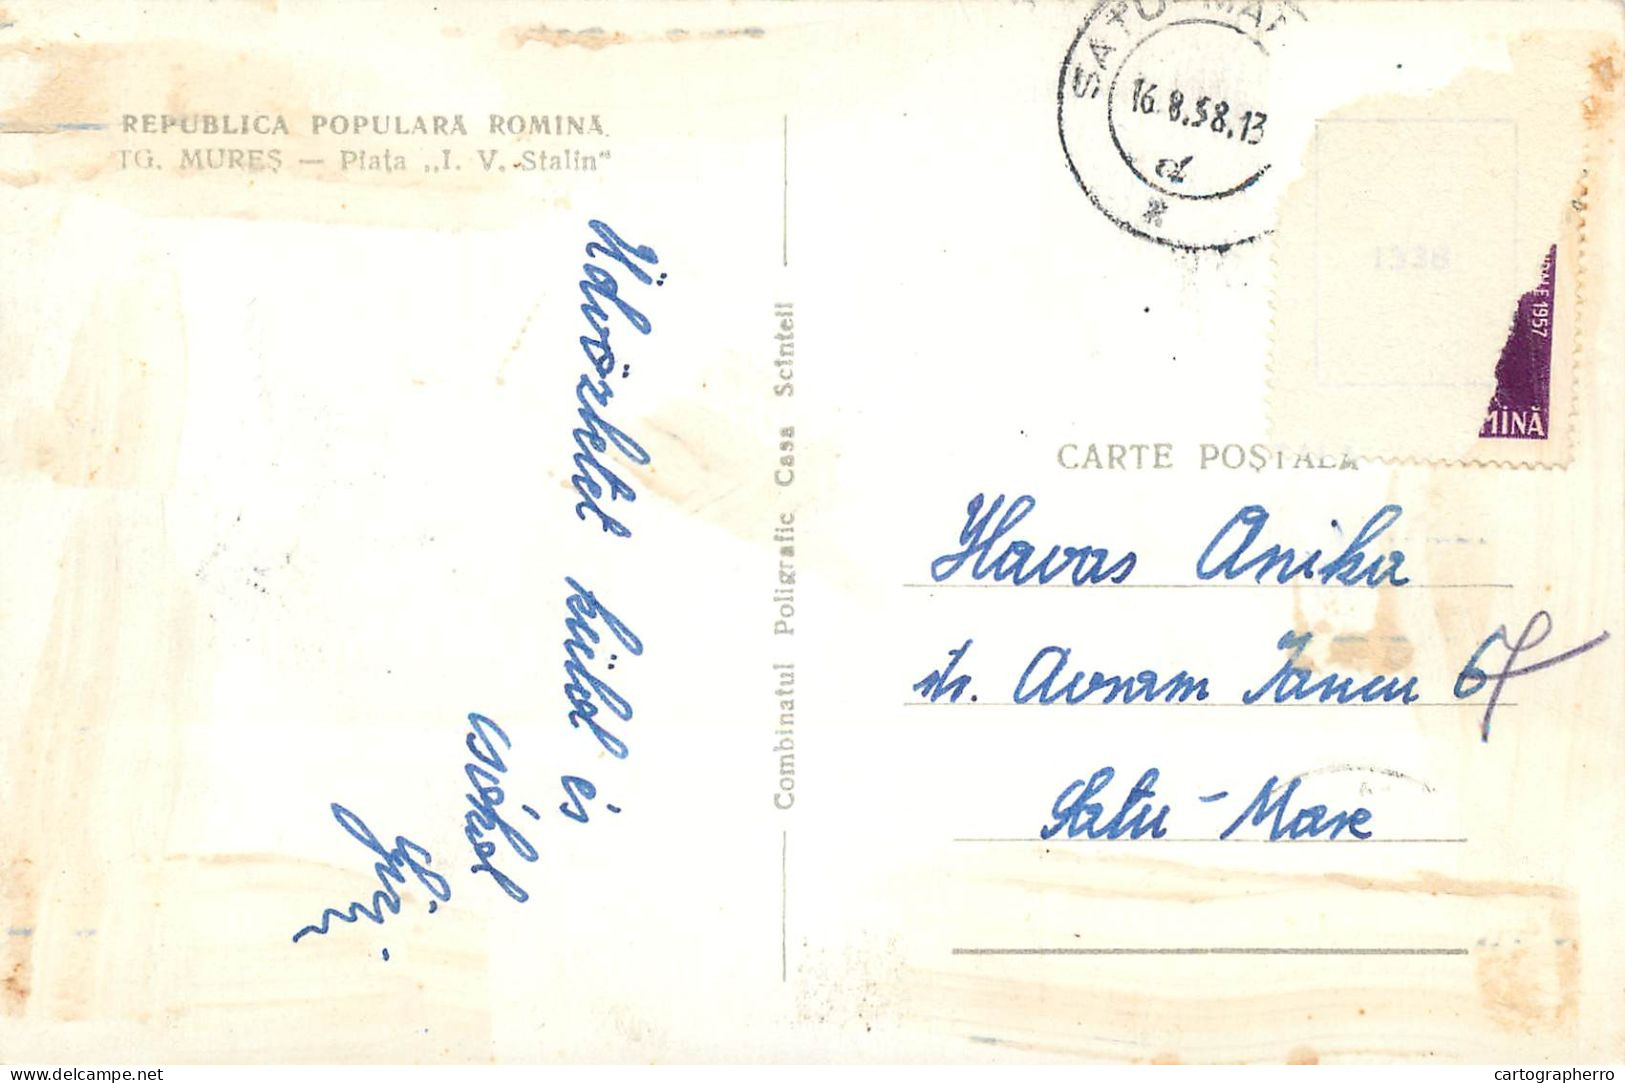 REPUBLICA POPULARĂ ROMINĂ
TG. MUREȘ — Piața „I. V. Stalin"
Üdvözletet küldöl és
csókol
Combinatul Poligrafic Casa Scînteii
SATU-MAR
16.8.58.13
1338
1957
MÎNĂ
CARTE POȘTALĂ
Havas Anika
str. Avram Iancu 67
Satu-Mare
delcampe.net
cartographerro